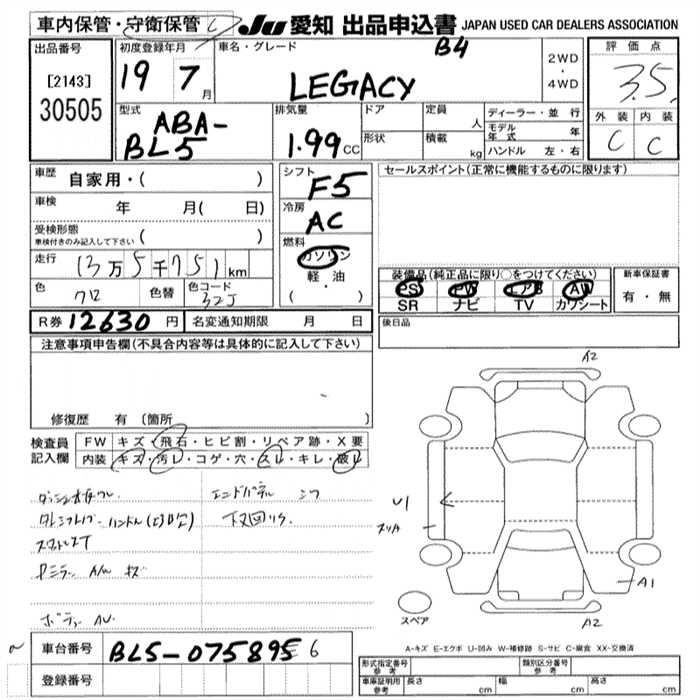 車内保管・守衛保管
JU 愛知 出品申込書 JAPAN USED CAR DEALERS ASSOCIATION
出品番号
[2143]
30505
初度登録年月
19 7月
車名・グレード
B4
LEGACY
2WD
・
4WD
評価点
3.5
外装 内装
C C
型式
ABA-
BL5
排気量
1.99 CC
ドア
形状
定員 人
積載 kg
ディーラー・並行
モデル年式 年
ハンドル 左・右
車歴 自家用・( )
車検 年 月( 日)
受検形態
車検付きのみ記入して下さい ( )
走行 13万5千751km
色 クロ 色替 色コード 32J
シフト
F5
冷房
AC
燃料
ガソリン
軽・油
( ・ )
セールスポイント(正常に機能するものに限ります)
装備品(純正品に限り○をつけてください)
PS PW エアB AW
SR ナビ TV カワシート
新車保証書
有・無
R券 12630円 名変通知期限 月 日
後日品
注意事項申告欄(不具合内容等は具体的に記入して下さい)
修復歴 有 〔箇所
検査員
記入欄
FW キズ・飛石・ヒビ割・リペア跡・X要
内装 キズ・汚レ・コゲ・穴・スレ・キレ・破レ
エンドパネル
キズ
A2
U1
A1
スペア
A2
車台番号 BL5-075895 6
登録番号
A-キズ E-エクボ U-凹み W-補修跡 S-サビ C-腐食 XX-交換済
形式指定番号 参考
類別区分番号 参考
車庫証明用 参考 長さ cm 幅 cm 高さ cm